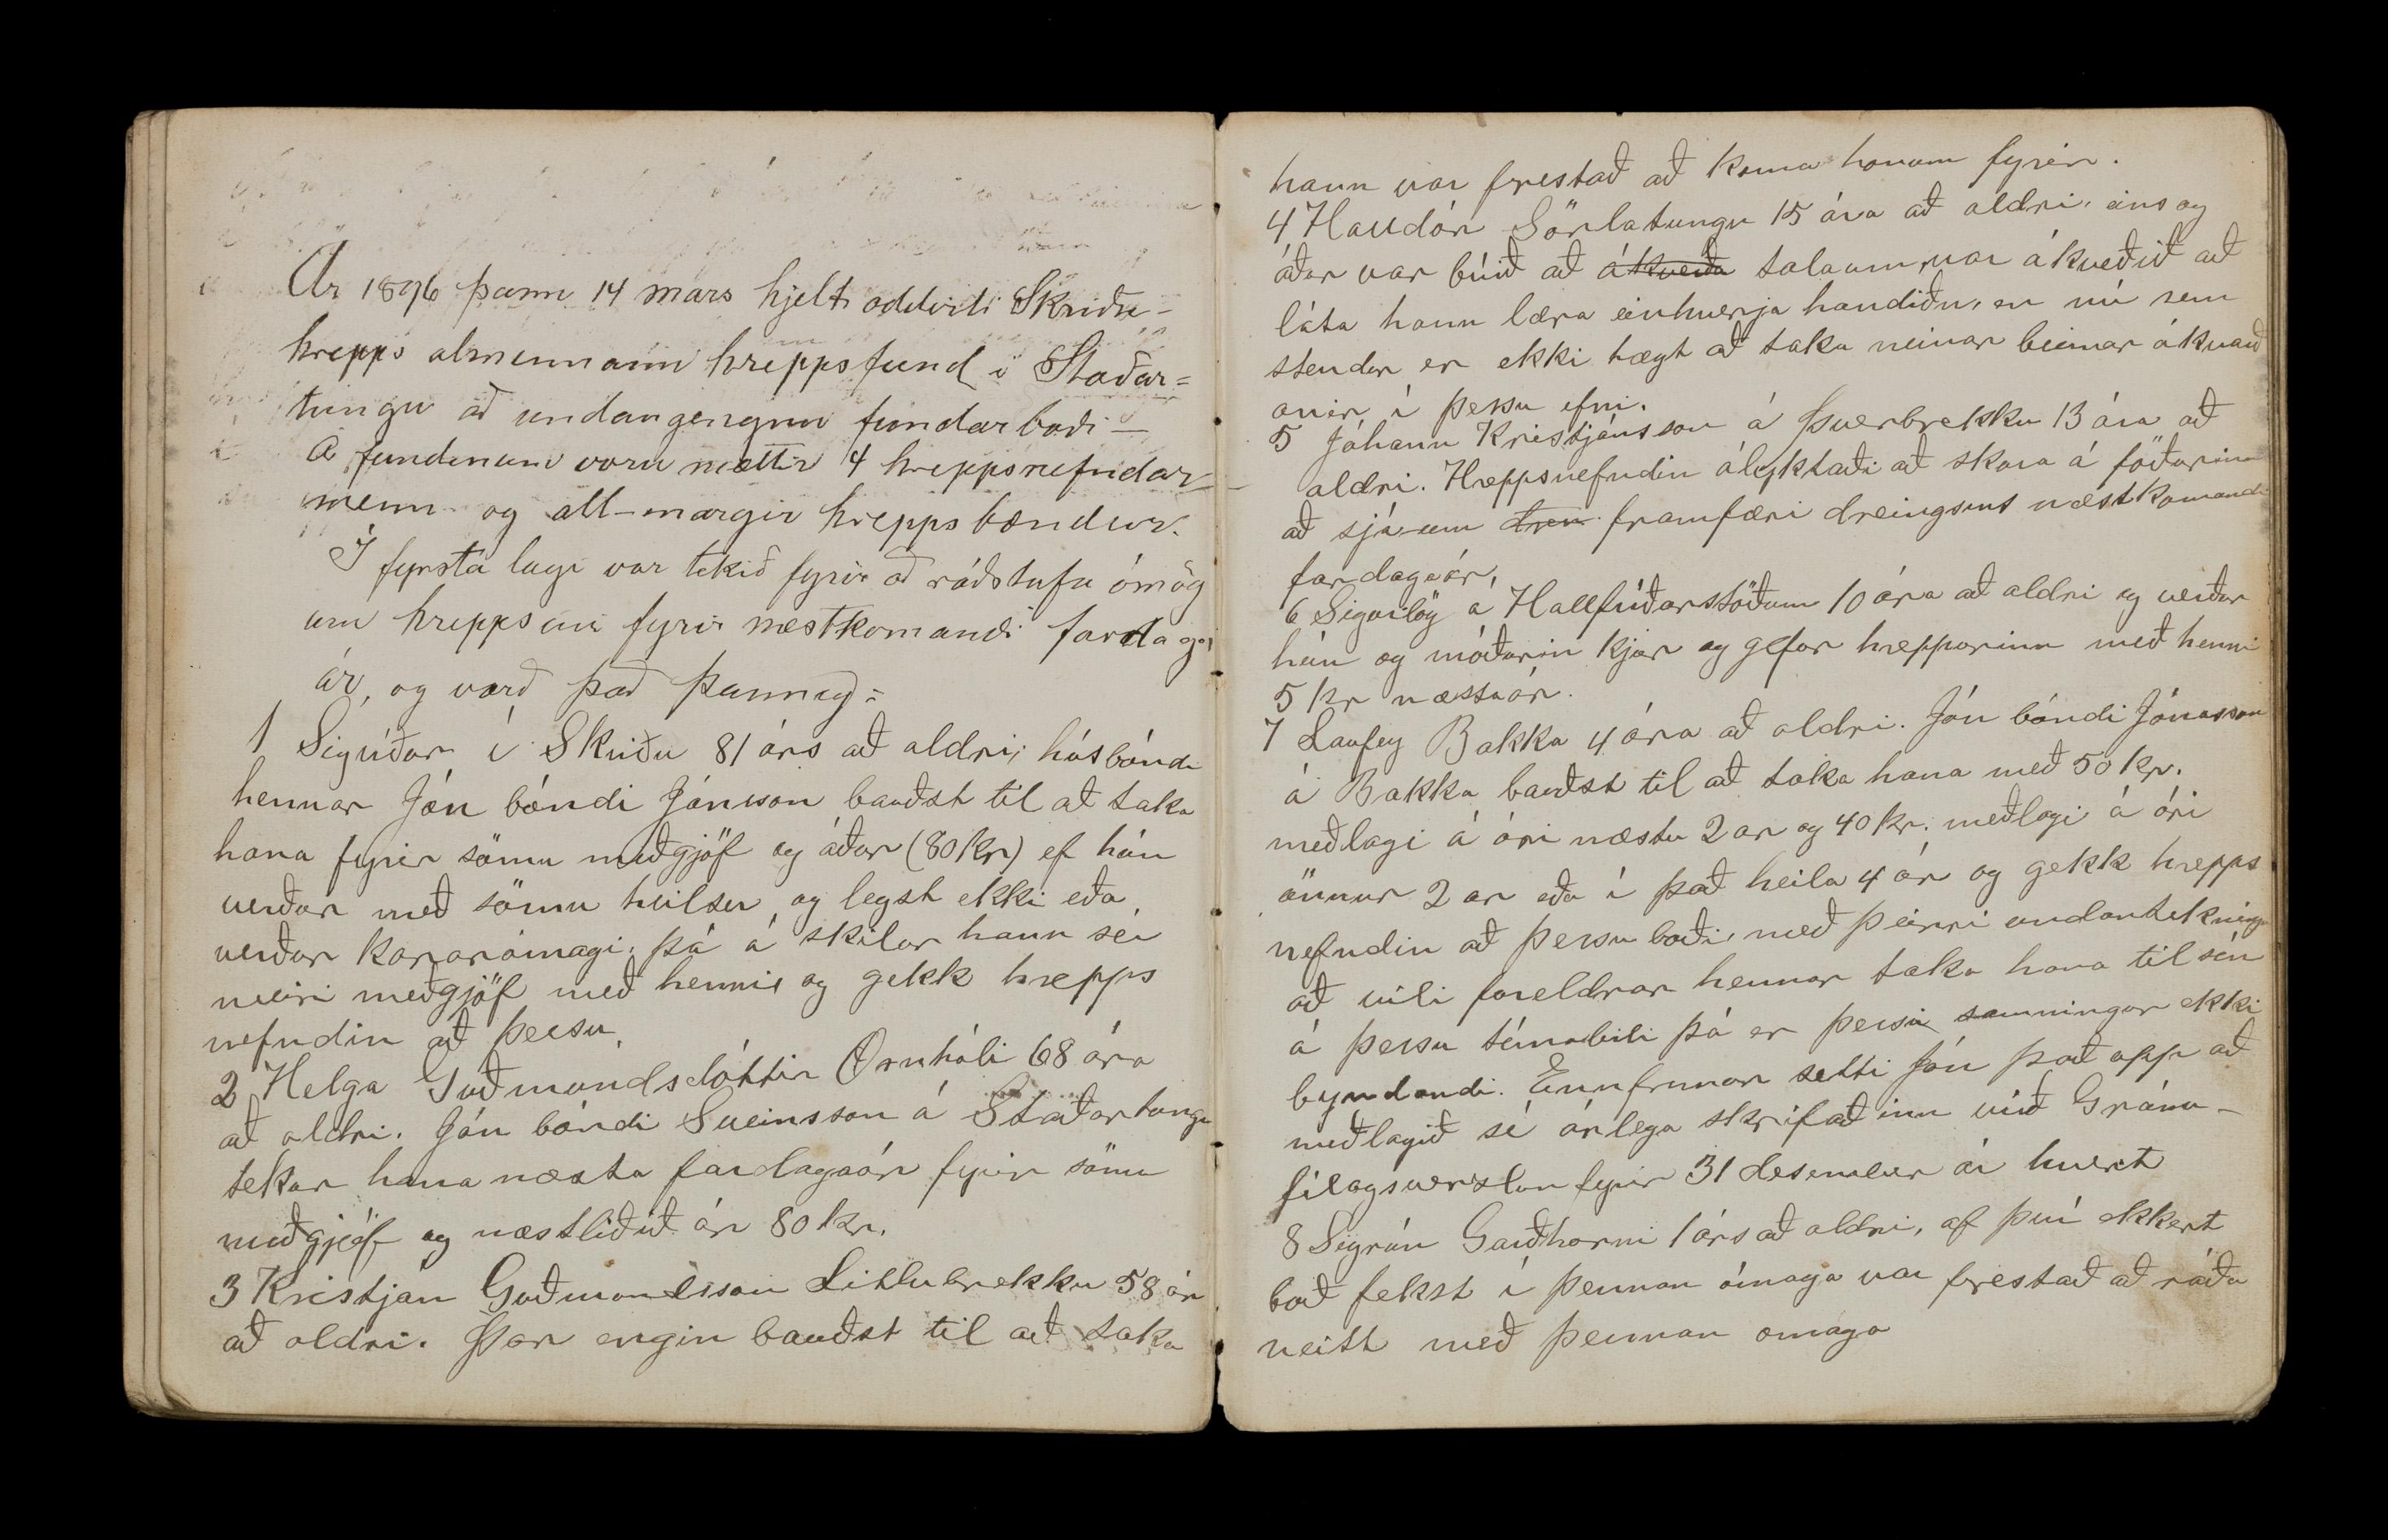 Ár 1896 þann 14 mars hjelt oddviti Skriðu-
hrepps almennann hreppsfund í Staðar=
tungu að undangengnu fundarboði —
Á fundinum voru mættir 4 hreppsnefndar
menn og all-margir hreppsbændur.
Í fyrsta lagi var tekið fyrir að ráðstafa ómög
um hreppsins fyrir næstkomandi fardaga
ár, og varð það þannig:
1 Sigríður í Skriðu 81 árs að aldri, húsbóndi
hennar Jón bóndi Jónsson bauðst til að taka
hana fyrir sömu meðgjöf og áður (80 kr) ef hún
verður með sömu heilsu, og legst ekki eða
verður kararómagi, þá á skilur hann sér
meiri meðgjöf með henni og gekk hrepps
nefndin að þessu.
2 Helga Guðmundsdóttir Ornhóli 68 ára
að aldri. Jón bóndi Sveinsson á Staðartungu
tekur hana næsta fardagaár fyrir sömu
meðgjöf og næstliðið ár 80 kr.
3 Kristján Guðmundsson Litlubrekku 58 ár
að aldri. Þar engin bauðst til að taka
hann var frestað að koma honum fyrir.
4 Halldór Sörlatungu 15 ára að aldri, eins og
áður var búið að ákveða tala um, var ákveðið að
láta hann læra einhverja handiðn, en nú sem
stendur er ekki hægt að taka neinar beinar ákvarð
anir í þessu efni.
5 Jóhann Kristjánsson á Þverbrekku 13 ára að
aldri. Hreppsnefndin ályktaði að skora á föðurinn
að sjá um dren framfæri dreingsins næstkomandi
fardagaár,
6 Sigurlög á Hallfríðarstöðum 10 ára að aldri og verður
hún og móðurin kjur og gefur hreppurinn með henni
5 kr næsta ár.
7 Laufey Bakka 4 ára að aldri. Jón bóndi Jónasson
á Bakka bauðst til að taka hana með 50 kr.
meðlagi á ári næstu 2 ar og 40 kr. meðlagi á ári
önnur 2 ar eða í það heila 4 ár og gekk hrepps
nefndin að þessu boði, með þeirri undantekningu
að vili foreldrar hennar taka hana til sín
á þessu tímabili þá er þessi samningur ekki
byndandi. Ennfremur setti Jón það upp að
meðlagið sé árlega skrifað inn við Gránu-
félagsverslun fyrir 31 desember ár hvert
8 Sigrún Garðhorni 1 árs að aldri, af því ekkert
boð fekst í þennan ómaga var frestað að ráða
neitt með þennan omaga